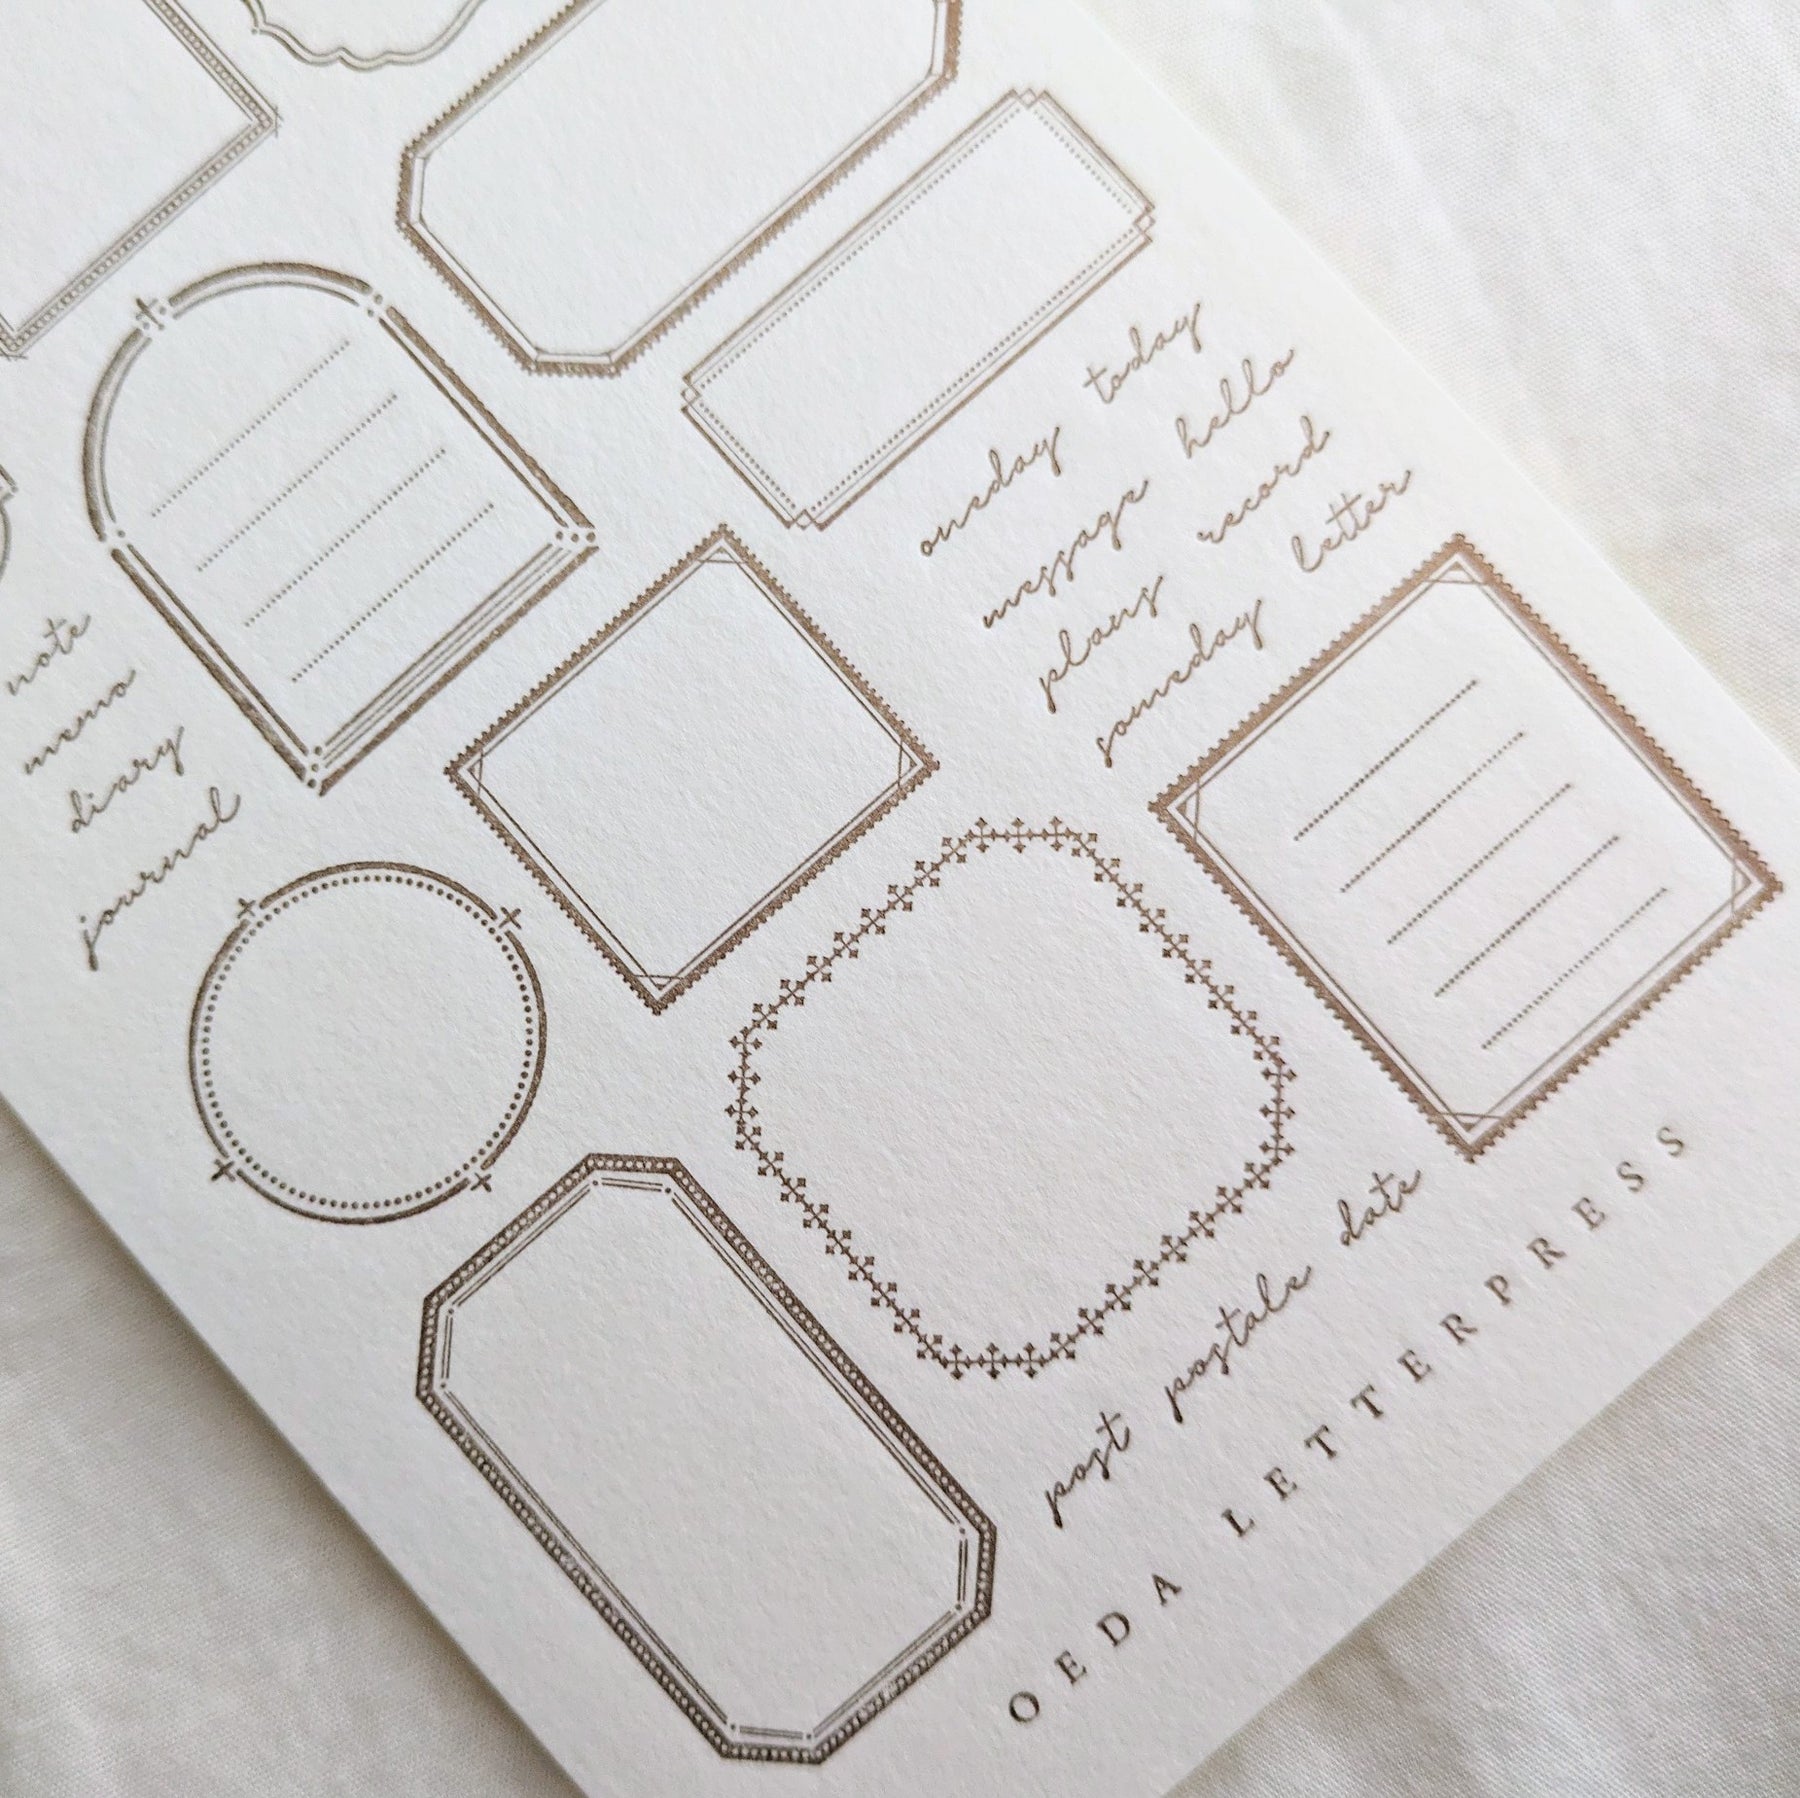 note
memo
diary
journal
oneday today
message hello
plans record
someday letter
post postale date
OEDA LETTERPRESS